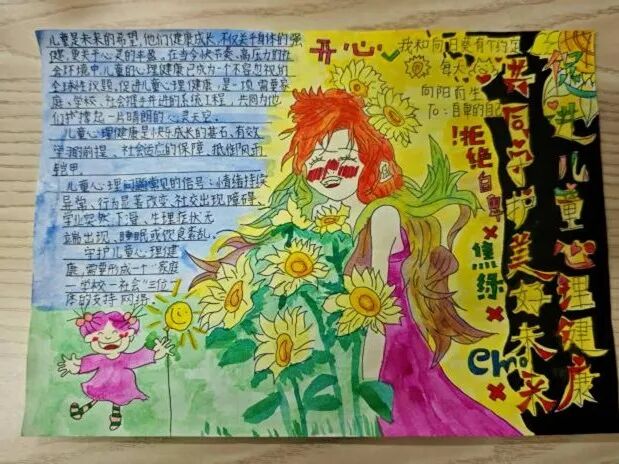 儿童是未来的希望,他们健康成长,不仅关乎身体的强
健,更关乎心灵的丰盈,在当今快节奏、高压力的社
会环境中,儿童的心理健康已成为一个不容忽视的
全球性议题,促进儿童心理健康,是一项需要家
庭、学校、社会携手并进的系统工程,共同为他
们护撑起一片晴朗的心灵天空。
儿童心理健康是快乐成长的基石、有效
学习的前提、社会适应的保障、抵御风雨
铠甲。
儿童心理问题常见的信号:情绪持续
异常、行为显著改变、社交出现障碍、
学业突然下滑、生理症状无
端出现、睡眠或饮食紊乱。
守护儿童心理健
康,需要形成一个"家庭
—学校—社会"三位一
体的支持网络
开心✓
我和向日葵有个约定
每天
向阳而生
To:自卑的自己
!拒绝自卑×
焦虑×
emo×
共同守护美好未来
促进儿童心理健康